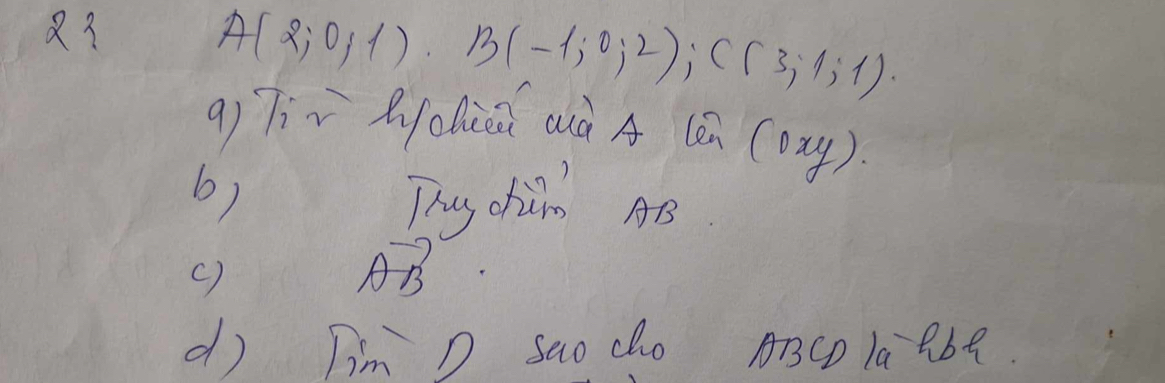 22 A(2;0;1). B(-1;0;2); C(3;1;1).
a) Tìm h/chiếu của A lên (Oxy).
b) Trung điểm AB.
c) \overrightarrow{AB}.
d) Tìm D sao cho ABCD là hbh.